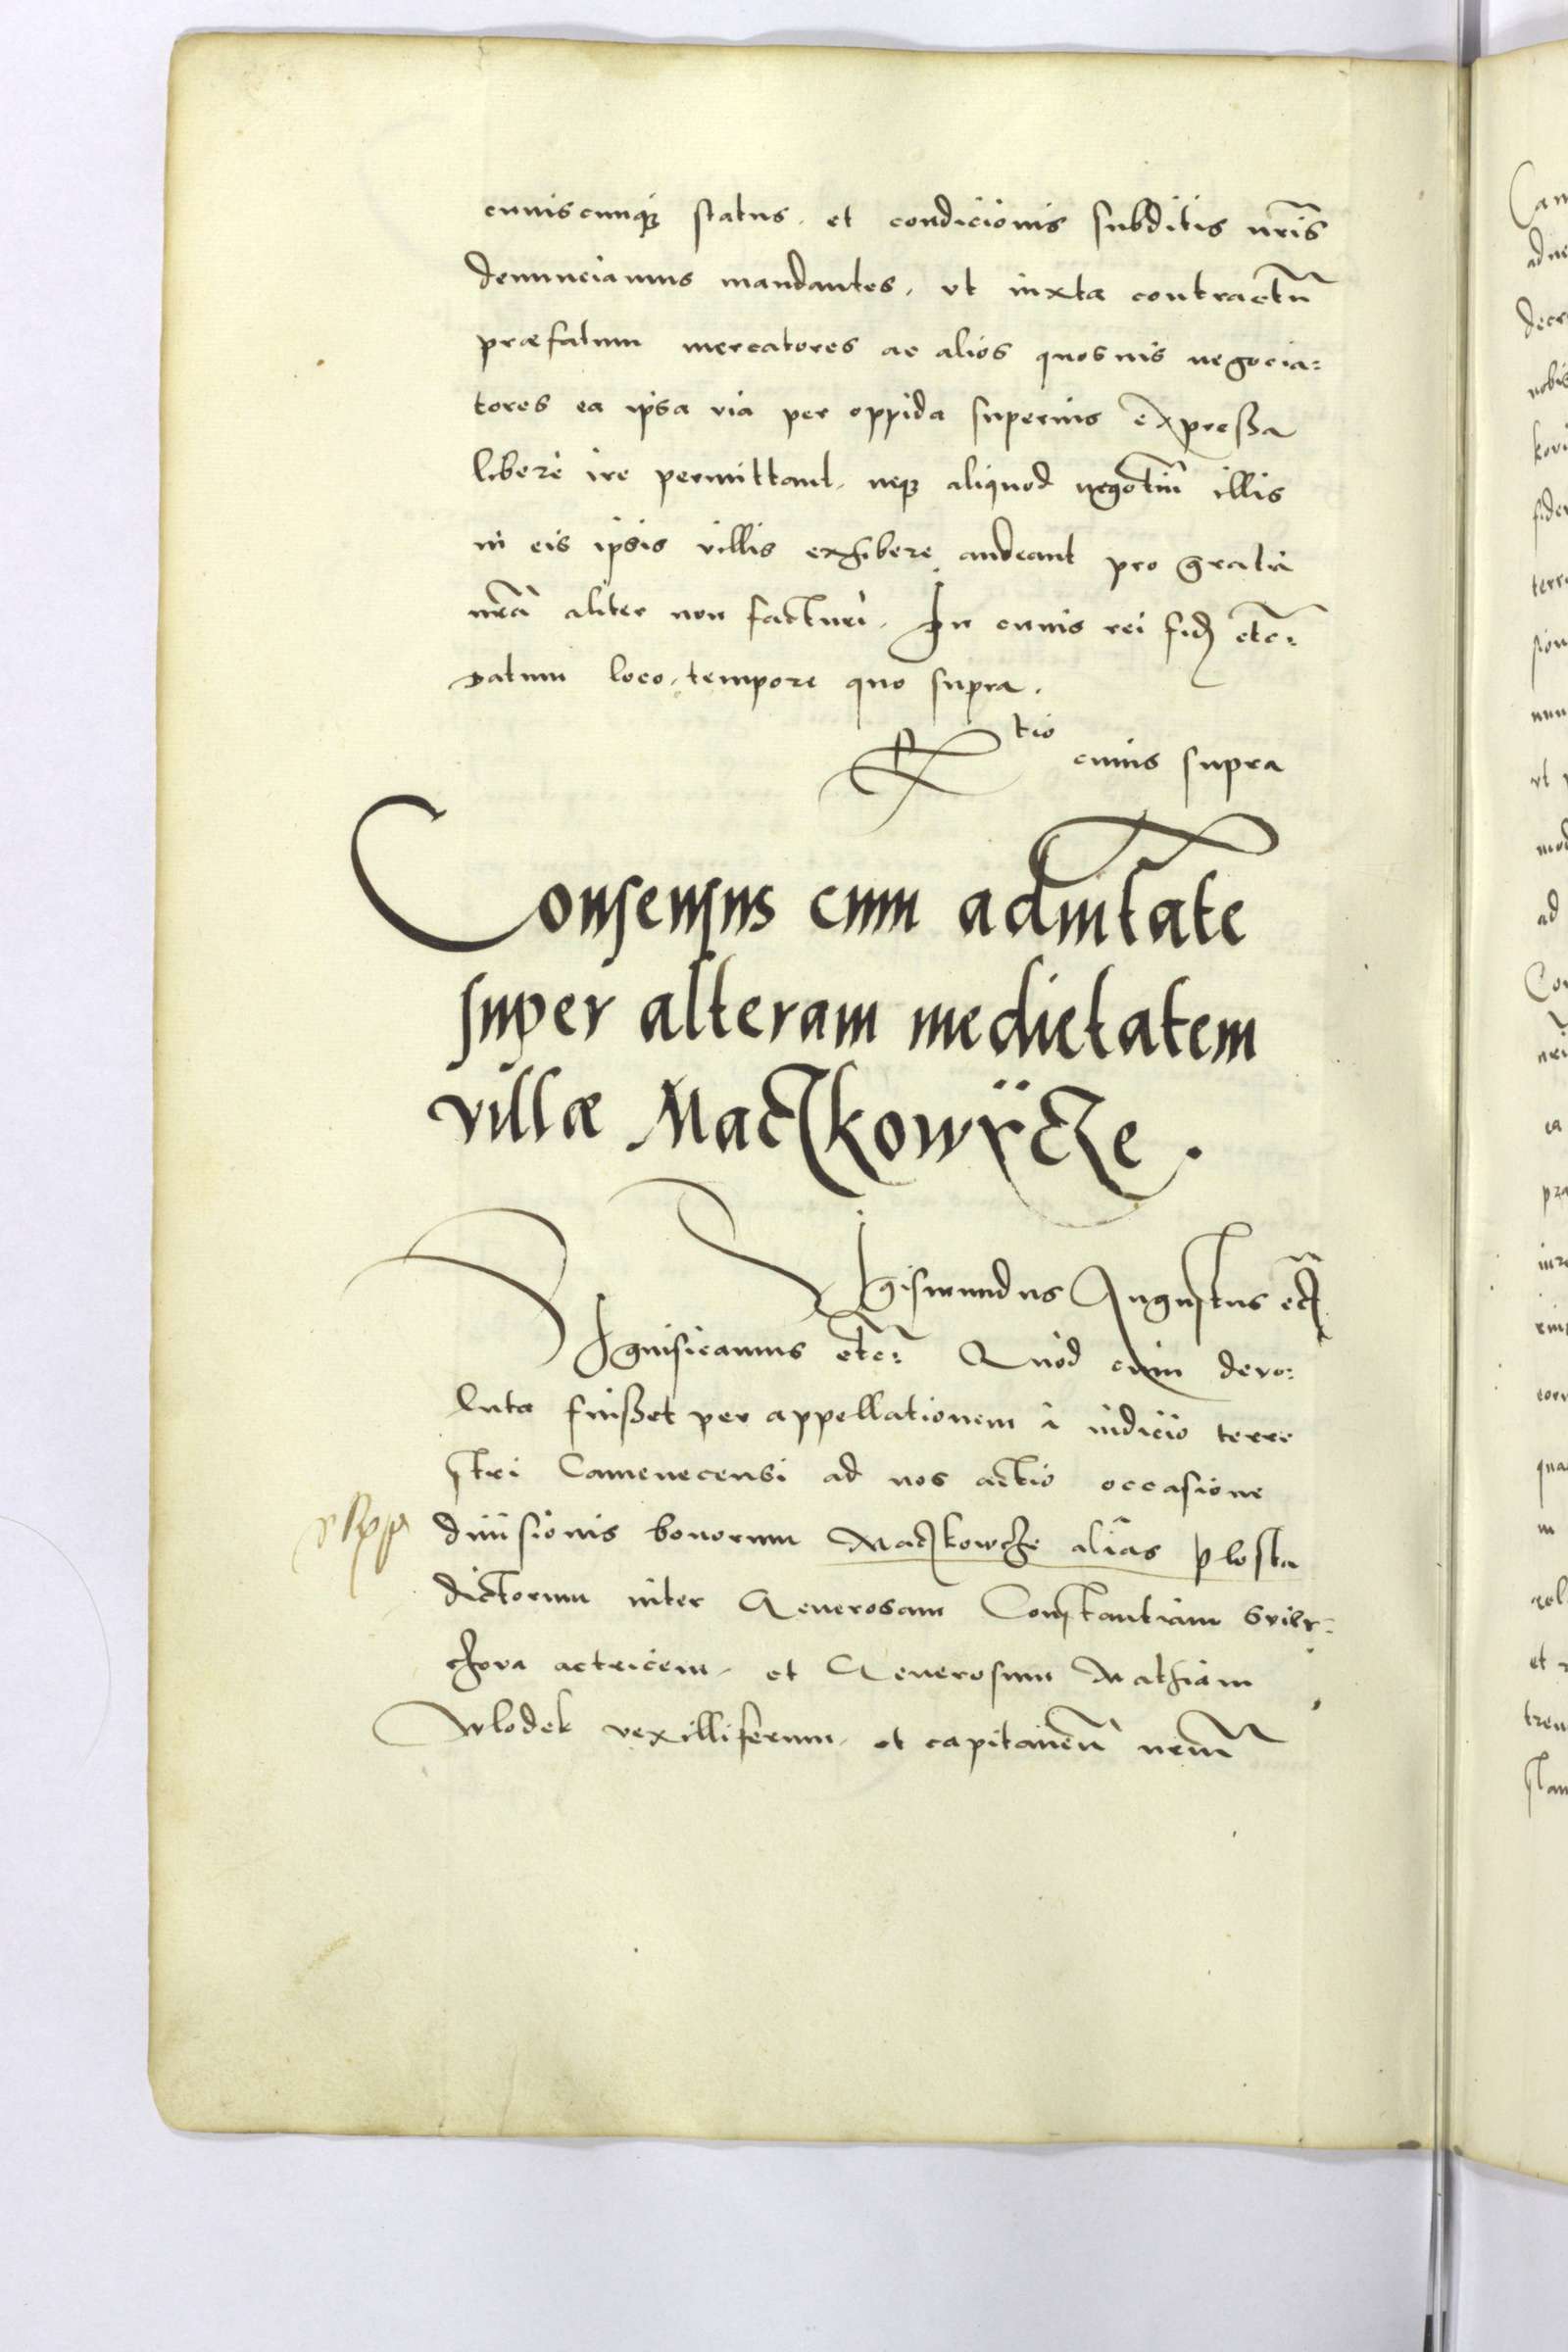 cuiuscunq; status et condicionis subditis nr̃is
denunciamus mandantes, vt iuxta contractũ
præfatum mercatores ac alios quosuis negocia=
tores ea ipsa via per oppida superius expressa
liberè ire permittant, neq; aliquod negotiũ illis
in eis ipsis villis exhibere audeant pro gratia
nr̃a aliter non facturi. In cuius rei fidẽ etc:
Datum loco, tempore quo supra.
R tio cuius supra
Consensus cum aduitate
super alteram medietatem
villæ Maczkowÿcze.
Sigismundus Augustus etc
Significamus etc: Quod cum deuo:
luta fuisset per appellationem à iudicio terre
stri Camenecensi ad nos actio occasione
diuisionis bonorum Maczkowcze aliâs Plosta
dictorum inter Generosam Constantiam
actricem, et Generosum Mathiam
Wlodek vexilliferum, et capitaneũ nr̃m